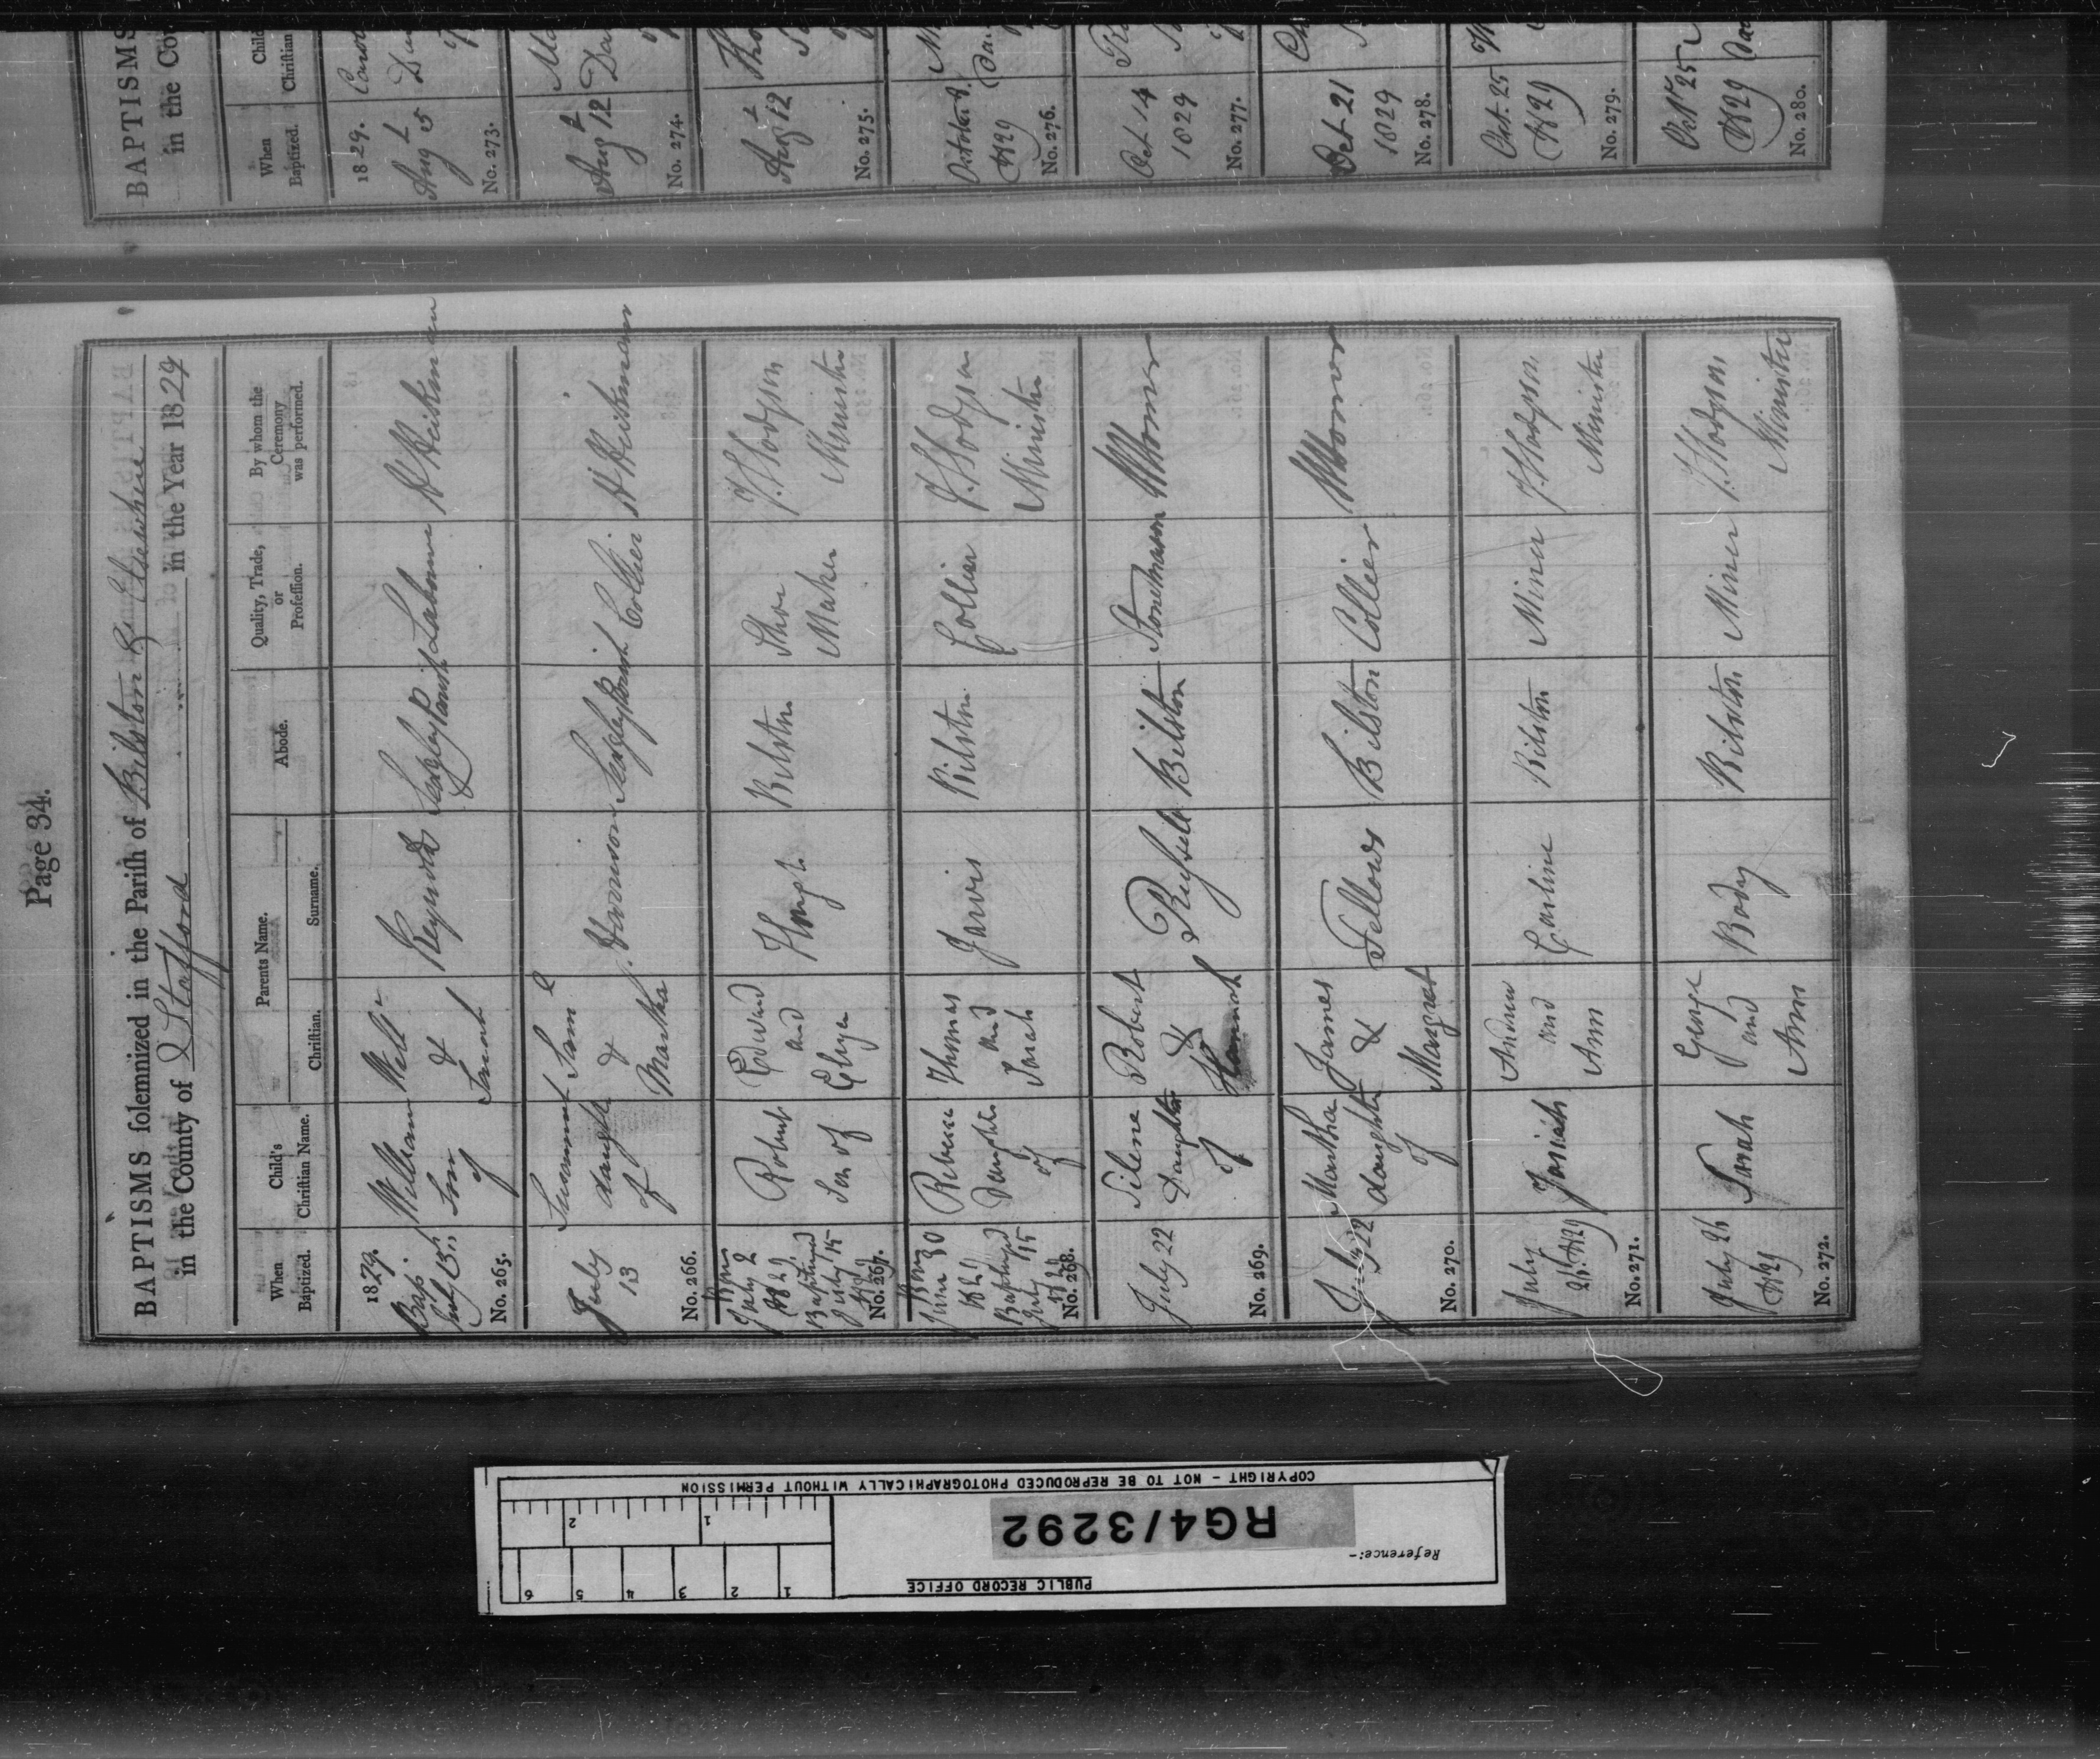 Page 34.
BAPTISMS solemnized in the Parish of Bilston & Elsewhere
in the County of Stafford in the Year 1829
When Baptized.
Child's Christian Name.
Parents Name.
Christian.
Surname.
Abode.
Quality, Trade, or Profession.
By whom the Ceremony was performed.
1829.
Bap.
July 13th
No. 265.
William
Son
of
Will
&
Sarah
Sedgley Parish
Labourer
July
13
No. 266.
daughter
of
Saml
&
Martha
Sedgley Parish
Collier
Born
July 2
1829
Baptized
July 15
1829
No. 267.
Robert
Son of
Edward
and
Eliza
Bilston
Shoe
Maker
J. Hodgson
Minister
Born
June 30
1829
Baptized
July 15
1829
No. 268.
Rebecca
Daughter
of
Thomas
and
Sarah
Jarvis
Bilston
Collier
J. Hodgson
Minister
July 22
No. 269.
Silene
Daughter
of
Robert
&
Hannah
Bilston
Stonemason
July 22
No. 270.
Martha
daughter
of
James
&
Margret
Fellows
Bilston
Collier
July
26th 1829
No. 271.
Josiah
Andrew
and
Ann
Bilston
Miner
J. Hodgson
Minister
July 26
1829
No. 272.
Sarah
George
and
Ann
Body
Bilston
Miner
J. Hodgson
Minister
BAPTISMS
in the Cou
When Baptized.
Child
Christian
1829.
Augt
5
No. 273.
Augt 12
No. 274.
Augt 12
No. 275.
October
1829
No. 276.
Oct 14
1829
No. 277.
Oct 21
1829
No. 278.
Oct. 25
1829
No. 279.
Octr 25
1829
No. 280.
COPYRIGHT - NOT TO BE REPRODUCED PHOTOGRAPHICALLY WITHOUT PERMISSION
RG4/3292
Reference:-
PUBLIC RECORD OFFICE
1 2
1 2 3 4 5 6